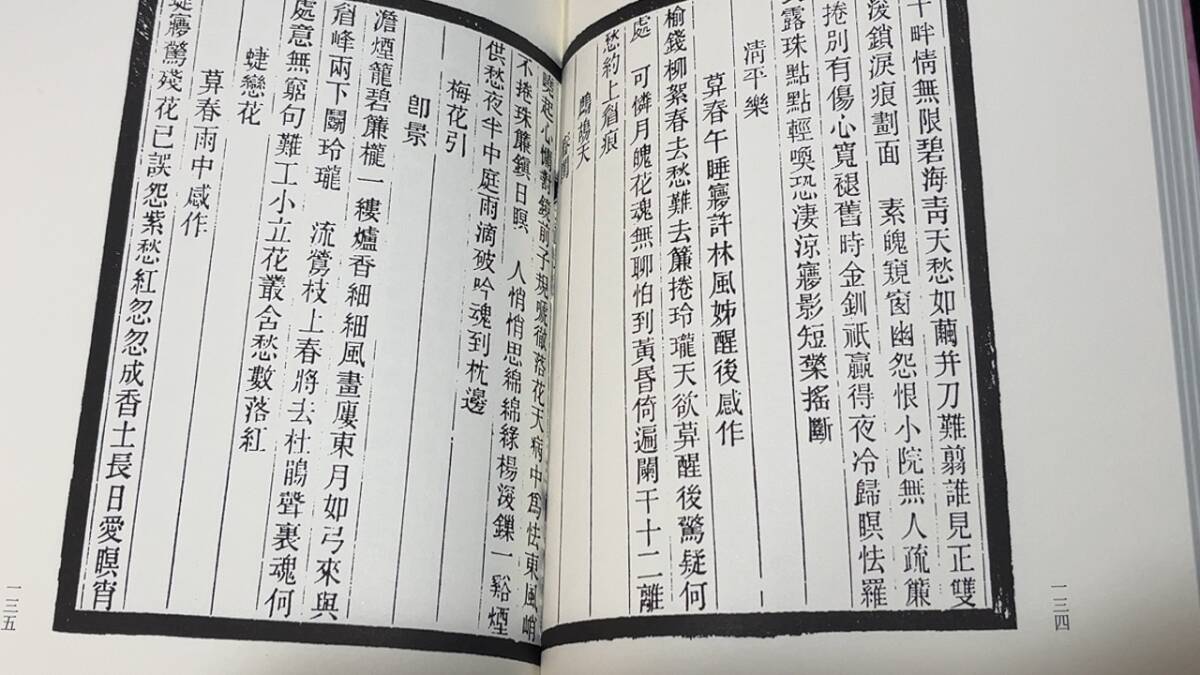 干畔情無限碧海靑天愁如繭并刀難翦誰見正雙
深鎖淚痕劃面　素魄窺窗幽怨恨小院無人疏簾
捲別有傷心寬褪舊時金釧祇贏得夜冷歸暝怯羅
露珠點點輕喚恐淒涼寱影短檠搖斷
淸平樂
莫春午睡寱許林風姊醒後感作
榆錢柳絮春去愁難去簾捲玲瓏天欲莫醒後驚疑何
處　可憐月魄花魂無聊怕到黃昏倚遍闌干十二離
愁約上眉痕
鷓鴣天
曉起心慵對鏡前子規嗁徹落花天病中爲怯東風峭
不捲珠簾鎭日暝　人悄悄思綿綿綠楊深鏁一谿煙
供愁夜半中庭雨滴破吟魂到枕邊
梅花引
卽景
澹煙籠碧簾櫳一縷爐香細細風畫廔東月如弓來與
眉峰兩下鬭玲瓏　流鶯枝上春將去杜鵑聲裏魂何
處意無窮句難工小立花叢含愁數落紅
蜨戀花
莫春雨中感作
寱驚殘花已誤怨紫愁紅忽忽成香土長日愛暝宵
一三四
一三五